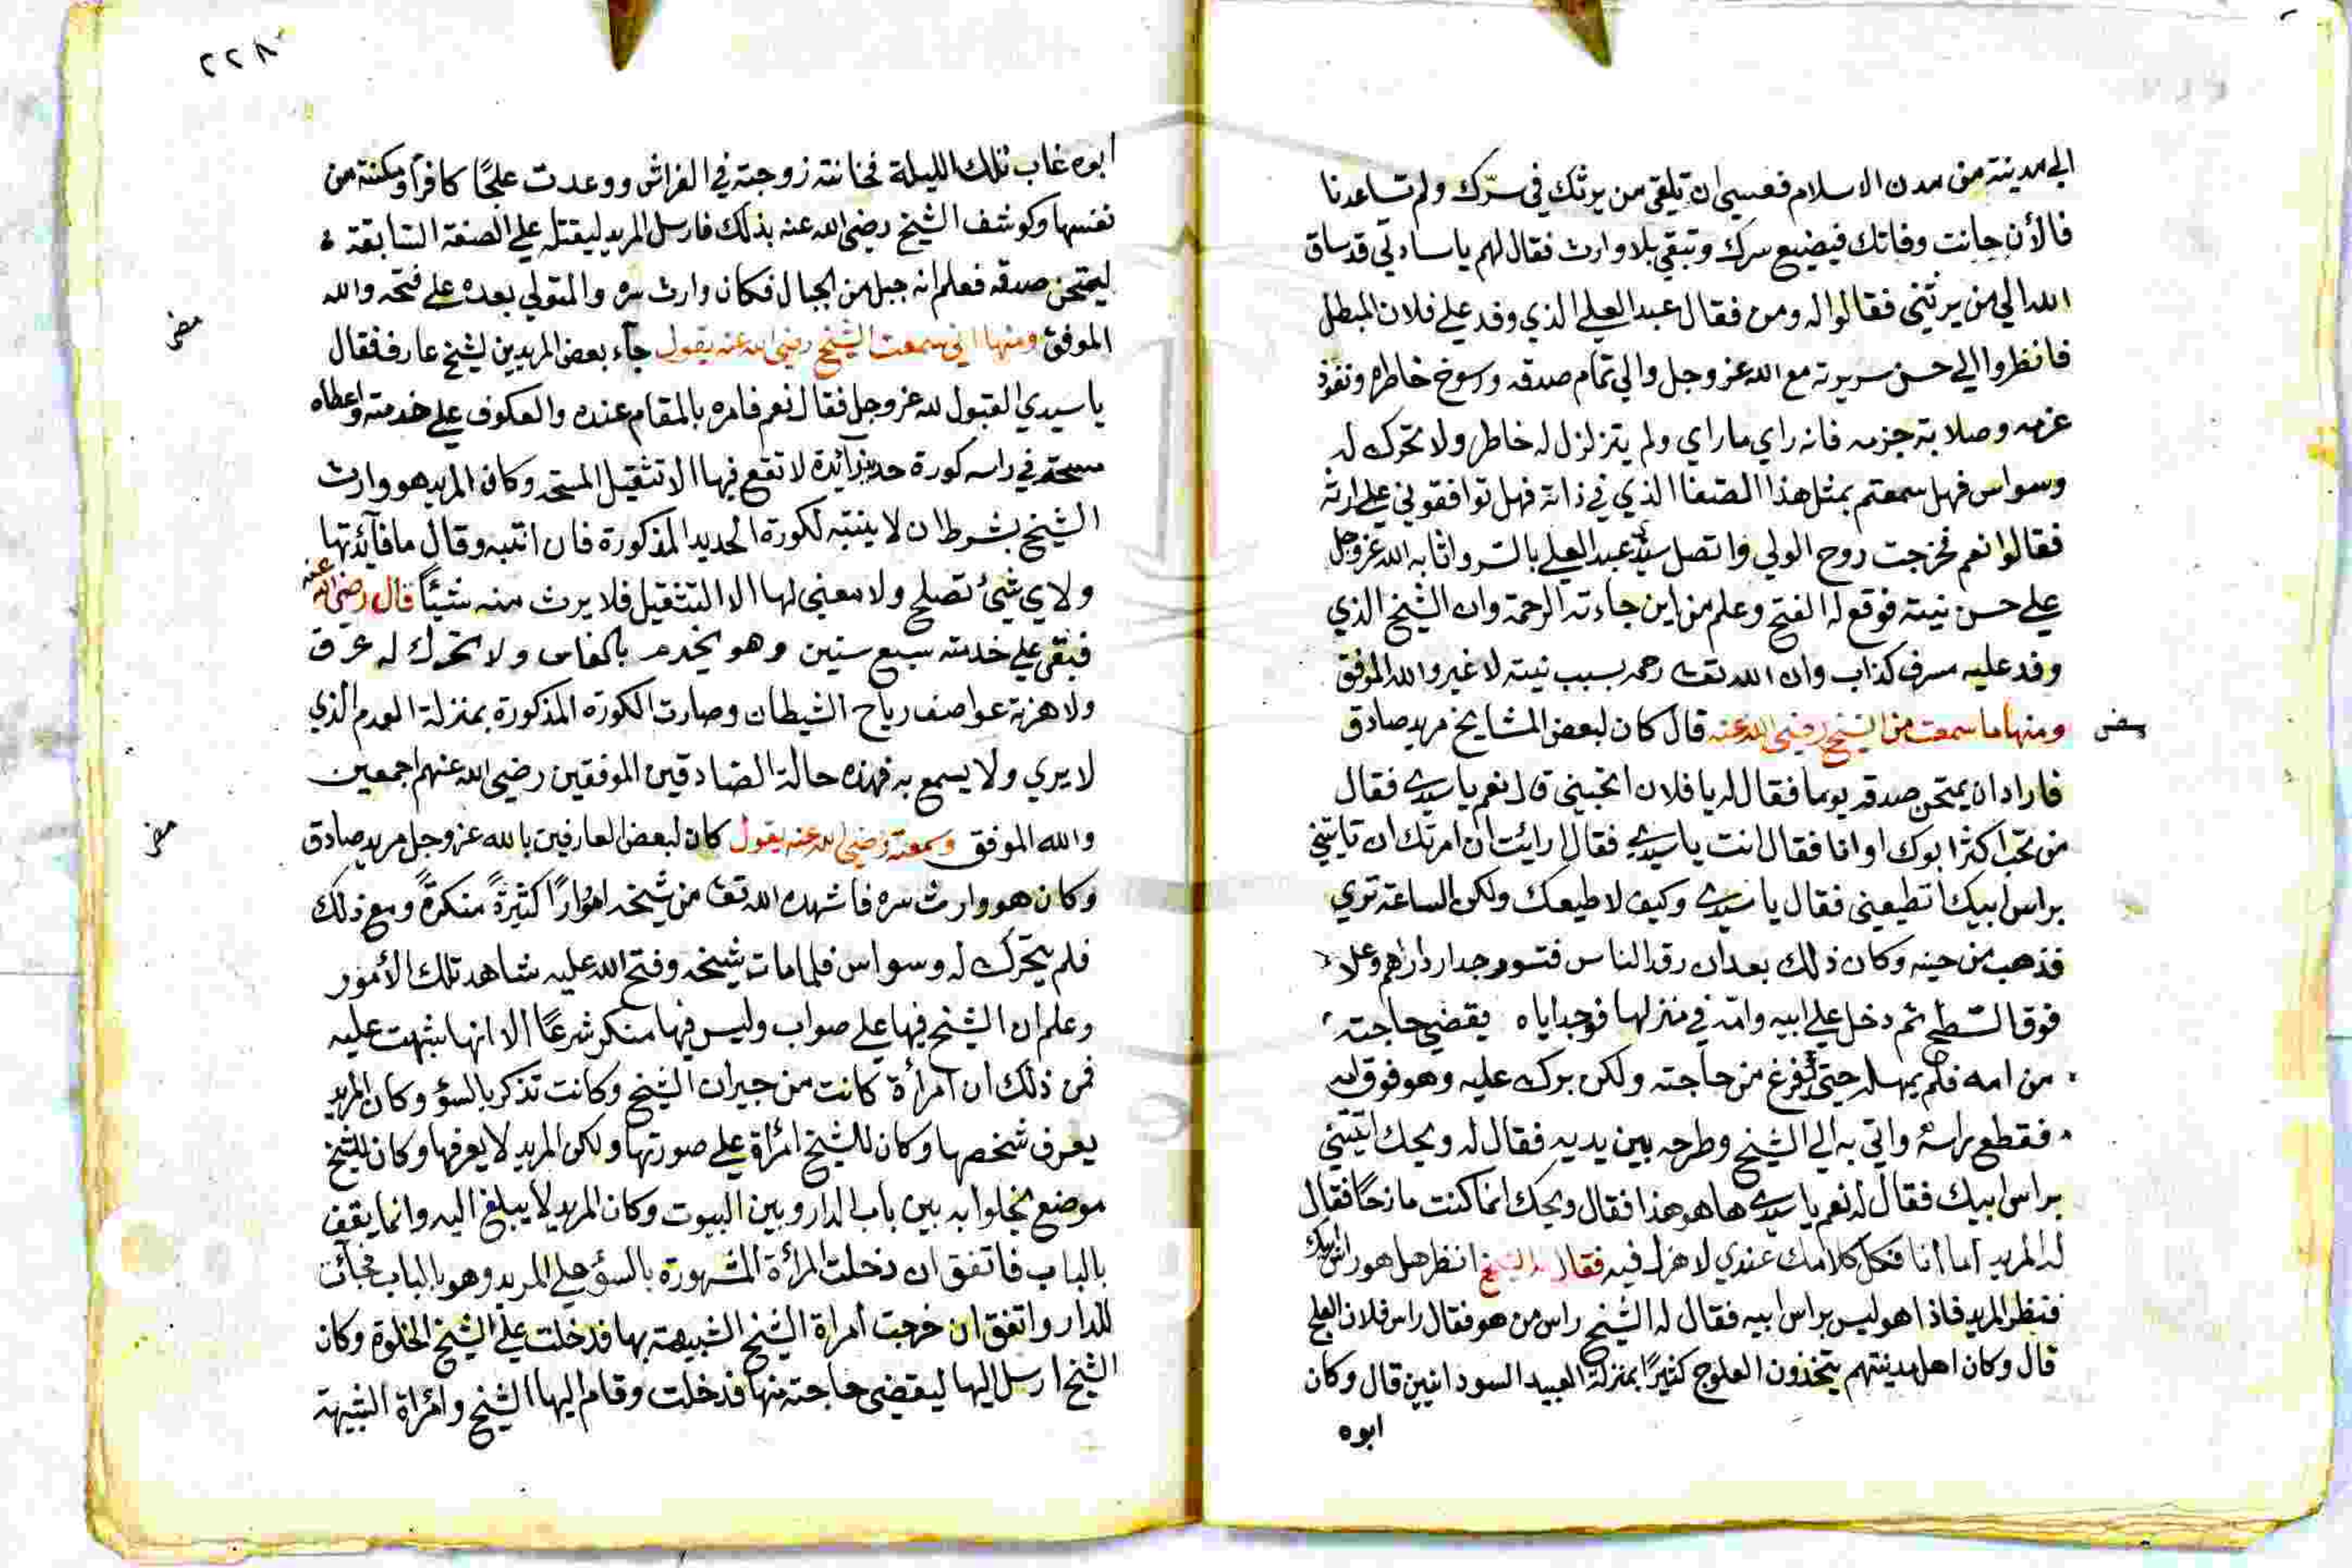 الي مدينة من مدن الاسلام فعسي ان تلقي من يرثك في سرّك ولم تساعدنا
فالأن جانت وفاتك فيضيع سرك وتبقي بلا وارث فقال لهم يا ساداتي قد ساق
الله الي من يرثني فقالوا له ومن فقال عبد العلي الذي وفد علي فلان المبطل
فانظروا الي حسن سريرته مع الله عز وجل والي تمام صدقه ورسوخ خاطره ونفوذ
عزمه وصلابة جزمه فانه راي ما راي ولم يتزلزل له خاطر ولا تحرك له
وسواس فهل سمعتم بمثل هذا الصفا الذي في ذاته فهل توافقوني علي ارثه
فقالوا نعم فخرجت روح الولي واتصل سيدي عبد العلي بالسر واثابه الله عز وجل
علي حسن نيته فوقع له الفتح وعلم من اين جاءته الرحمة وان الشيخ الذي
وفد عليه مسرف كذاب وان الله تعالى رحمه بسبب نيته لا غير والله الموفق
ومنها ما سمعت من الشيخ رضي الله عنه قال كان لبعض المشايخ مريد صادق
فاراد ان يمتحن صدقه يوما فقال له يا فلان اتحبني قال نعم يا سيدي فقال
من تحب اكثر ابوك او انا فقال انت يا سيدي فقال ارايت ان امرتك ان تاتيني
براس ابيك اتطيعني فقال يا سيدي وكيف لا طيعك ولكن الساعة تري
فذهب من حينه وكان ذلك بعد ان رقد الناس فتسور جدار دارهم وعلا
فوق السّطح ثم دخل علي ابيه وامّه في منزلهما فوجد اباه يقضي حاجته
من امه فلم يمهله حتي يفرغ من حاجته ولكن برك عليه وهو فوق امه
فقطع راسه واتي به الي الشيخ وطرحه بين يديه فقال له ويحك اتيتني
براس ابيك فقال له نعم يا سيدي ها هو هذا فقال ويحك انما كنت مازحًا فقال
له المريد اما أنا فكل كلامك عندي لا هزل فيه فقال له الشيخ انظر هل هو راس ابيك
فنظر المريد فاذا هو ليس براس ابيه فقال له الشيخ راس من هو فقال راس فلان العلج
قال وكان اهل مدينتهم يتخذون العلوج كثيرًا بمنزلة العبيد السودانيين قال وكان
ابوه
ابوه غاب تلك الليلة فخانته زوجته في الفراش ووعدت علجًا كافرًا ومكنته من
نفسها وكوشف الشيخ رضي الله عنه بذلك فارسل المريد ليقتله علي الصفة السّابقة
ليمتحن صدقه فعلم انه جبل من الجبال فكان وارث سره والمتولي بعده علي فتحه والله
الموفق ومنها اني سمعت الشيخ رضي الله عنه يقول جآء بعض المريدين لشيخ عارف فقال
يا سيدي القبول لله عز وجل فقال نعم فامره بالمقام عنده والعكوف علي خدمته واعطاه
مسحة في راسه كورة حديد زآئدة لا نفع فيها الا تثقيل المسحة وكان المريد هو وارث
الشيخ بشرط ان لا ينتبه لكورة الحديد المذكورة فان انتبه وقال ما فآئدتها
ولاي شئ تصلح ولا معني لها الا التثقيل فلا يرث منه شيئًا قال رضي الله عنه
فبقي علي خدمته سبع سنين وهو يخدم بالفاس ولا تحرك له عرق
ولا هزته عواصف رياح الشيطان وصارت الكورة المذكورة بمنزلة العدم الذي
لا يري ولا يسمع به فهذه حالة الصادقين الموفقين رضي الله عنهم اجمعين
والله الموفق وسمعته رضي الله عنه يقول كان لبعض العارفين بالله عز وجل مريد صادق
وكان هو وارث سره فاشهده الله تعالى من شيخه امورًا كثيرةً منكرةً ومع ذلك
فلم يتحرك له وسواس فلما مات شيخه وفتح الله عليه شاهد تلك الأمور
وعلم ان الشيخ فيها علي صواب وليس فيها منكر شرعًا الا انها شبهت عليه
فمن ذلك ان امرأة كانت من جيران الشيخ وكانت تذكر بالسؤ وكان المريد
يعرف شخصها وكان للشيخ امرأة علي صورتها ولكن المريد لا يعرفها وكان للشيخ
موضع يخلوا به بين باب الدار وبين البيوت وكان المريد لا يبلغ اليه وانما يقف
بالباب فاتفق ان دخلت المرأة المشهورة بالسؤ علي المريد وهو بالباب فجآت
للدار واتفق ان خرجت امراة الشيخ الشبيهة بها فدخلت علي الشيخ الخلوة وكان
الشيخ ارسل اليها ليقضي حاجته منها فدخلت وقام اليها الشيخ وامراة الشبيهة